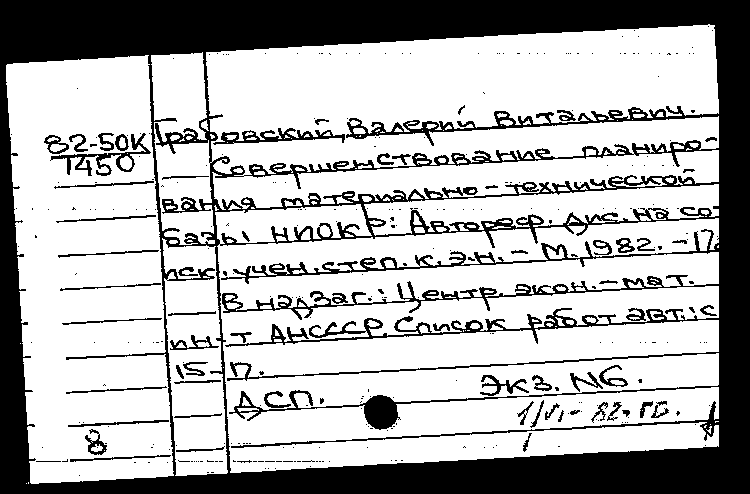 82-50К Грабовский, Валерий Витальевич.
1450 Совершенствование планиро-
вания материально-технической
базы НИОКР: Автореф. дис. на со-
иск. учен. степ. к.э.н. - М., 1982. - 17
В надзаг.: Центр. экон.-мат.
ин-т АН СССР. Список работ авт.: с
15-17.
ДСП. Экз. №6.
8